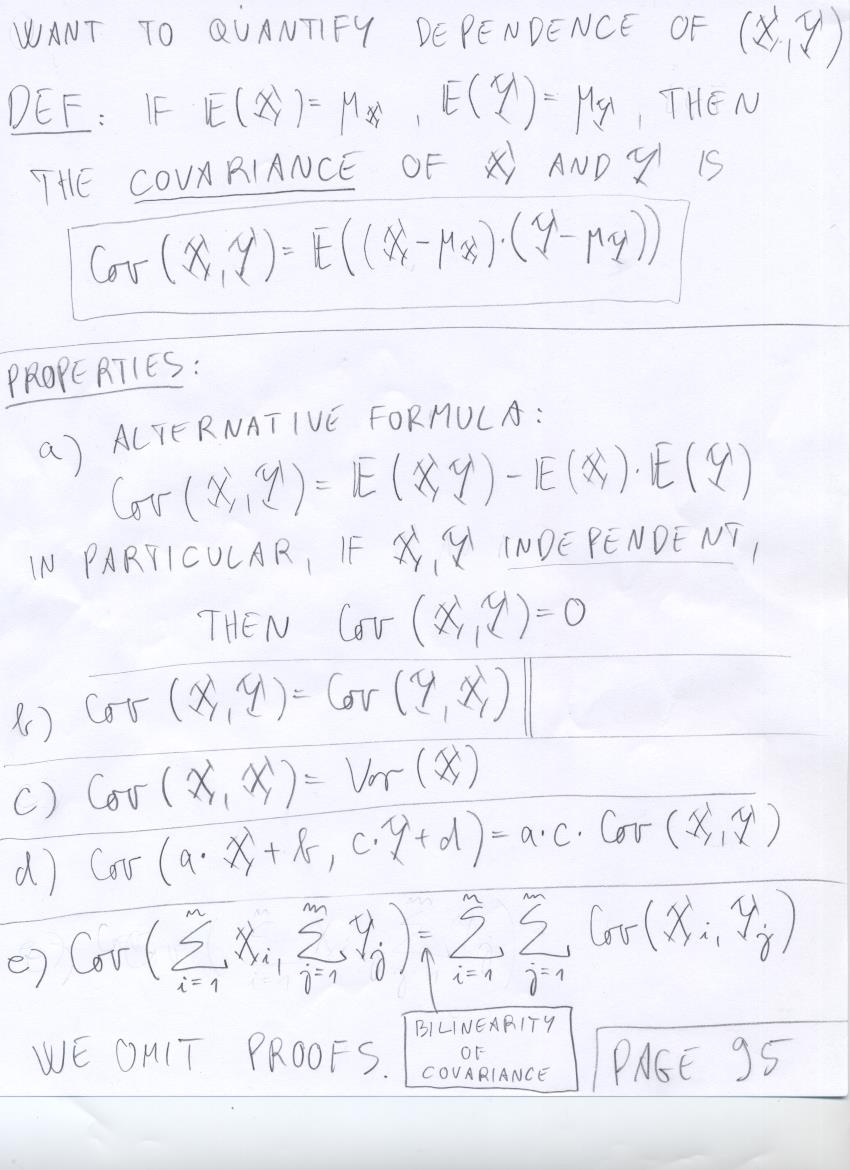 WANT TO QUANTIFY DEPENDENCE OF (X,Y)
DEF: IF E(X)=μ_X, E(Y)=μ_Y, THEN
THE COVARIANCE OF X AND Y IS
Cov(X,Y)=E((X-μ_X)·(Y-μ_Y))
PROPERTIES:
a) ALTERNATIVE FORMULA:
Cov(X,Y)=E(XY)-E(X)·E(Y)
IN PARTICULAR, IF X,Y INDEPENDENT,
THEN Cov(X,Y)=0
b) Cov(X,Y)=Cov(Y,X)
c) Cov(X,X)=Var(X)
d) Cov(a·X+b, c·Y+d)=a·c·Cov(X,Y)
e) Cov(∑_{i=1}^{n} X_i, ∑_{j=1}^{m} Y_j)=∑_{i=1}^{n} ∑_{j=1}^{m} Cov(X_i, Y_j)
BILINEARITY
OF
COVARIANCE
WE OMIT PROOFS.
PAGE 95